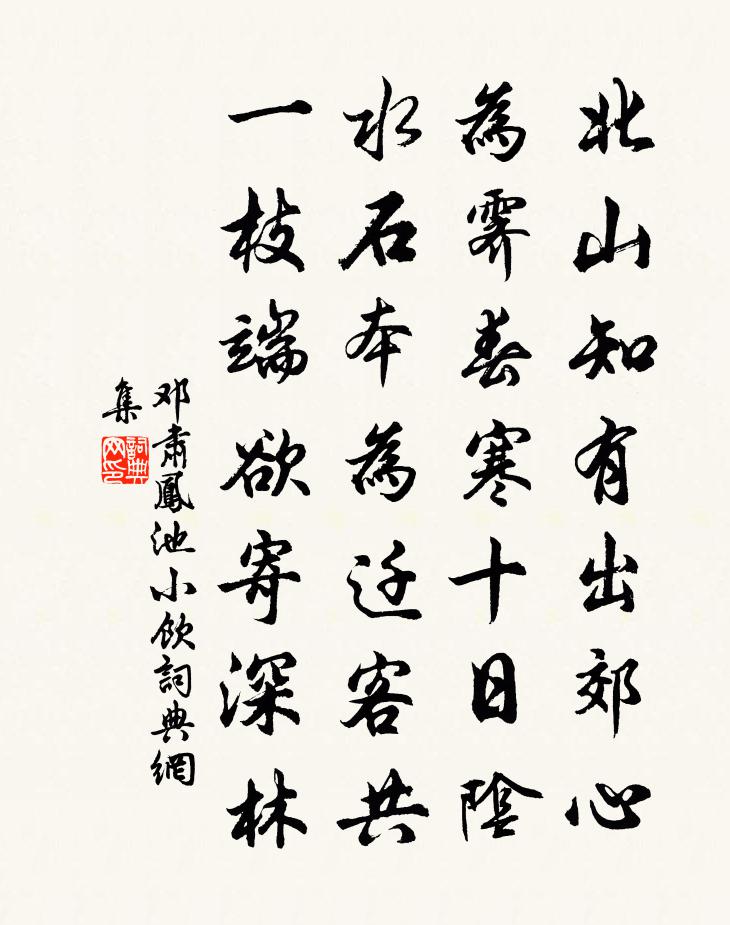 北山知有出郊心
為霽春寒十日陰
水石本為迁客共
一枝端欲寄深林
邓肅鳳池小飲詞典網
集
詞典网印